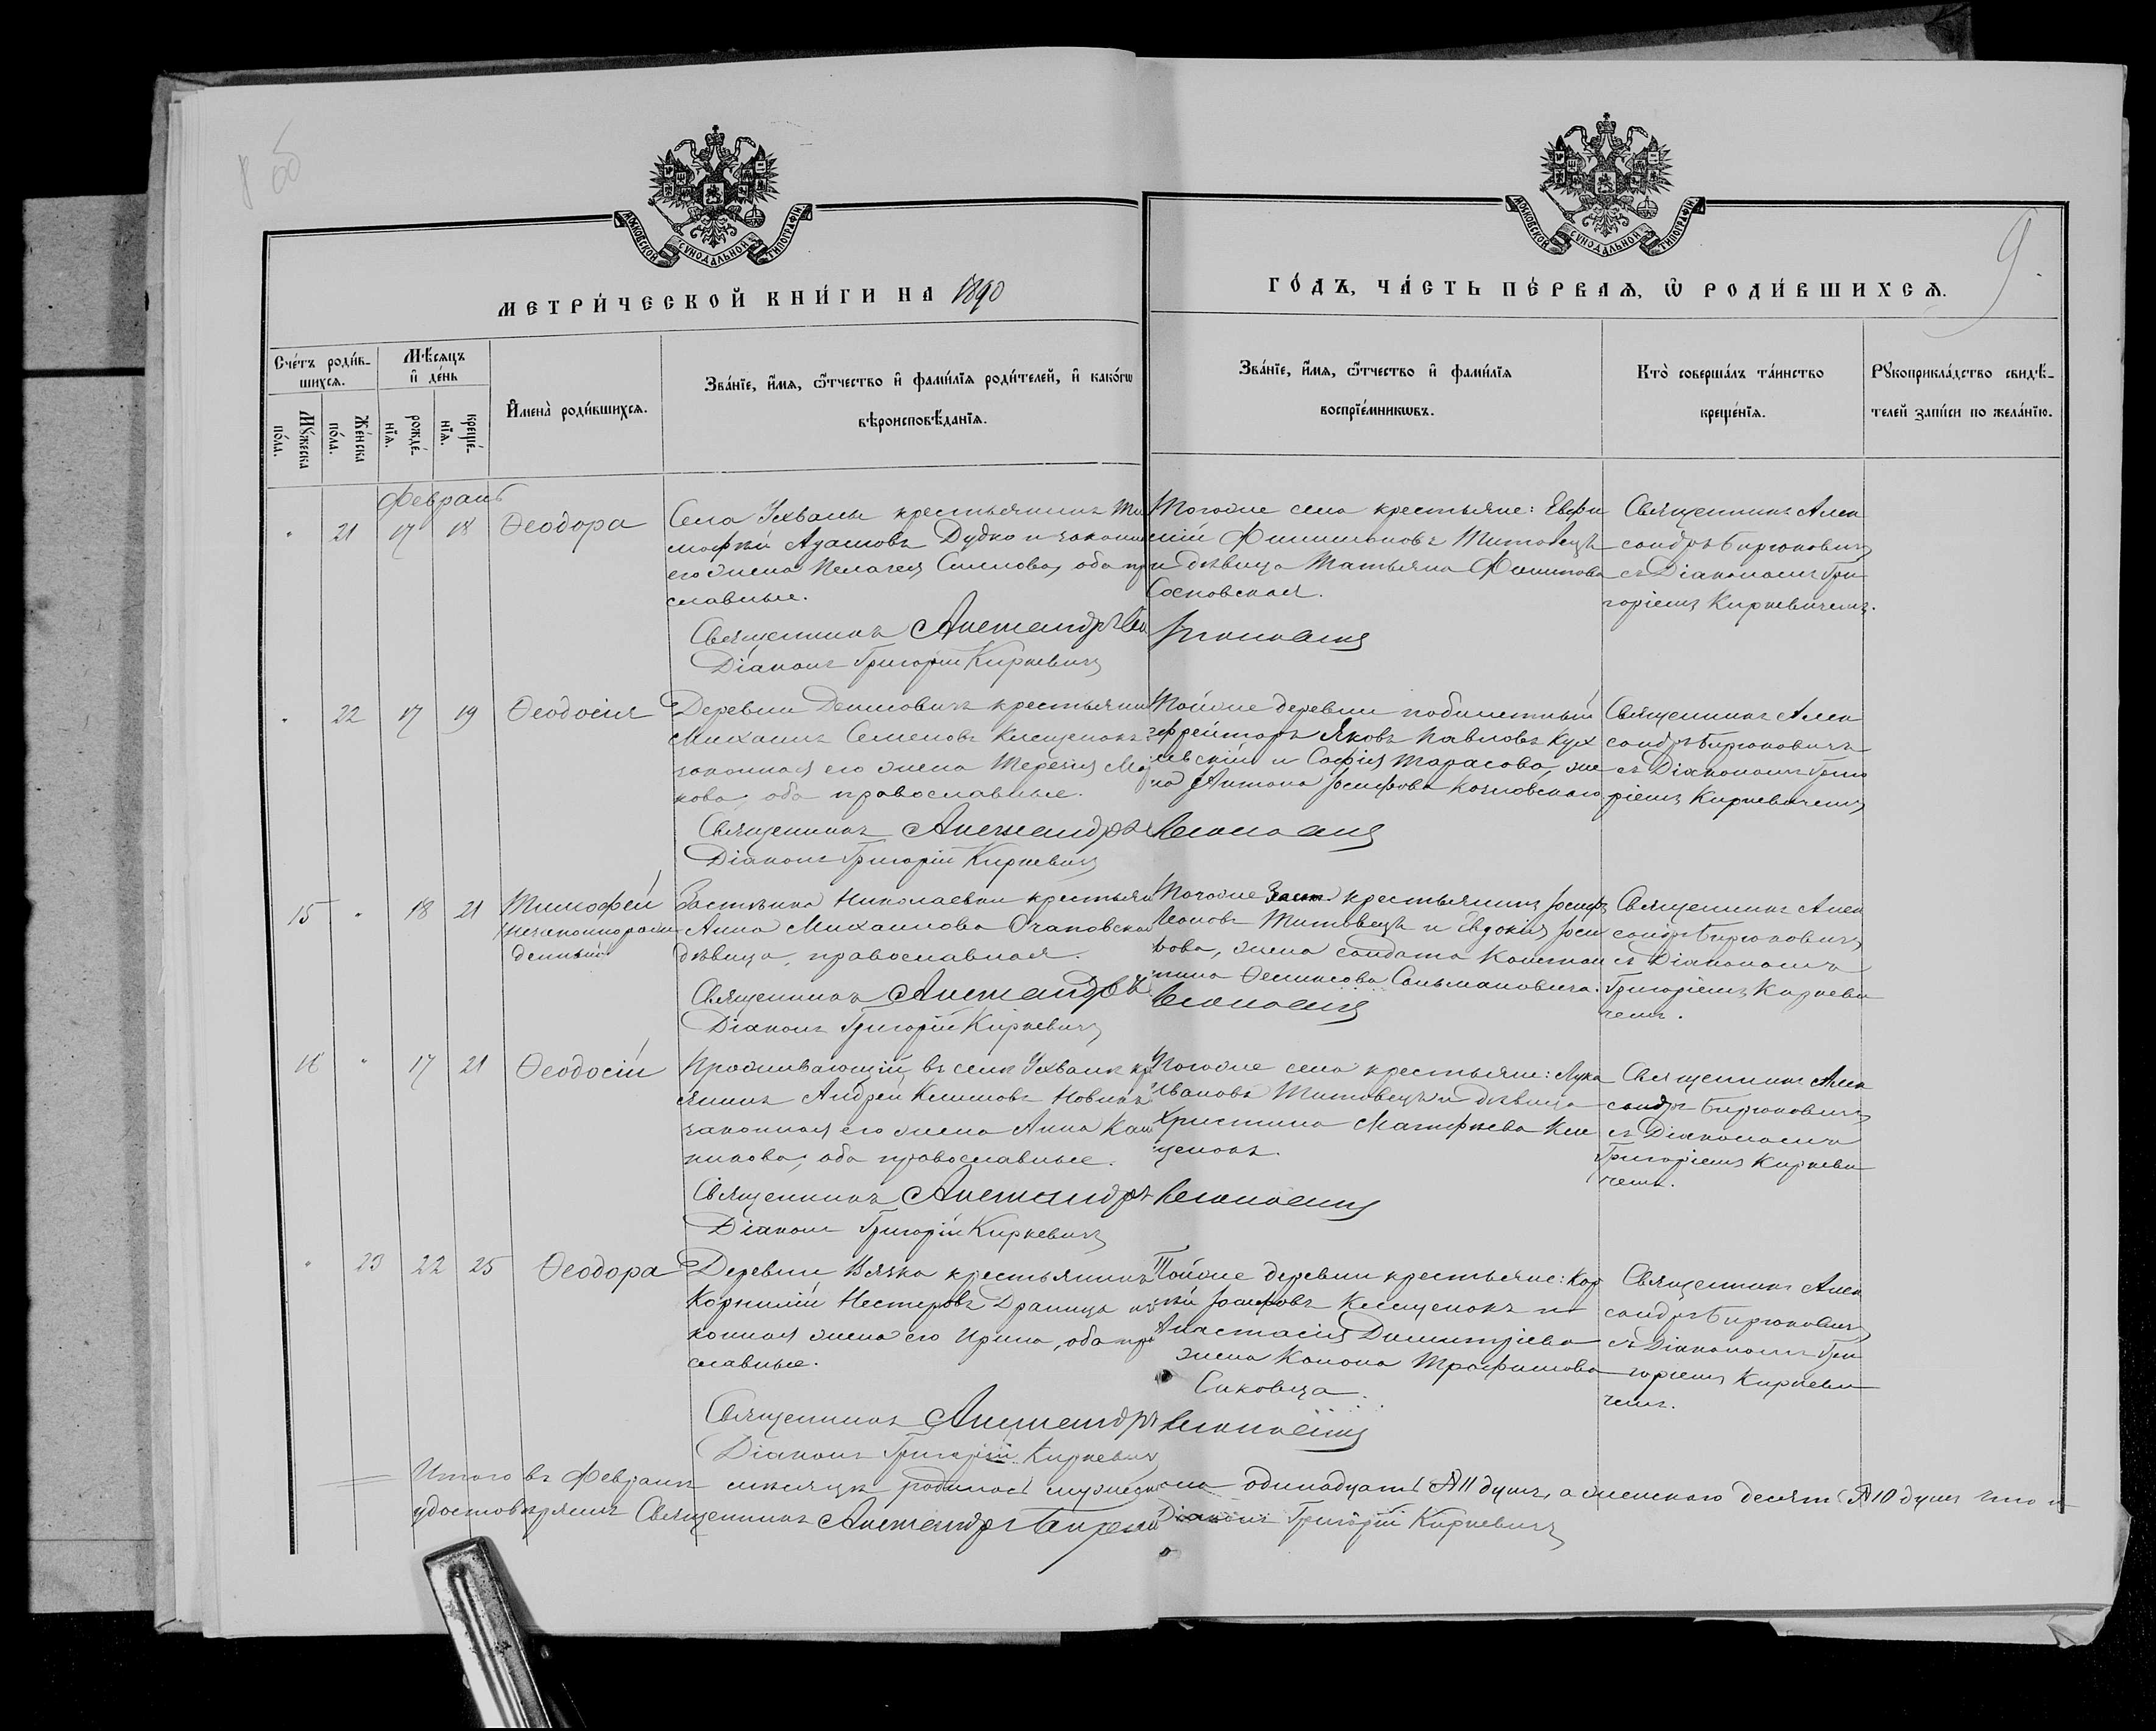 8 об
9.
МОСКОВСКОЙ СѴНОДАЛЬНОЙ ТИПОГРАФІИ
МОСКОВСКОЙ СѴНОДАЛЬНОЙ ТИПОГРАФІИ
МЕТРИ́ЧЕСКОЙ КНИ́ГИ НА 1890
ГО́ДЪ, ЧА́СТЬ ПЕ́РВАѦ, Ѡ РОДИ́ВШИХСѦ.
Сче́тъ роди́в-
шихсѧ.
Мꙋ́жеска
по́ла.
Же́нска
по́ла.
Мѣ́сѧцъ
и҆ де́нь
рожде́-
нїѧ.
креще́-
нїѧ.
И҆мена̀ роди́вшихсѧ.
Зва́нїе, и҆́мѧ, ѻ҆́тчество и҆ фами́лїѧ роди́телей, и҆ како́гѡ
вѣроисповѣ́данїѧ.
Зва́нїе, и҆́мѧ, ѻ҆́тчество и҆ фами́лїѧ
воспрїе́мникѡвъ.
Кто̀ соверша́лъ та́инство
креще́нїѧ.
Рꙋкоприкла́дство свидѣ́-
телей за́писи по жела́нїю.
Февраль
" 21 17 18 Ѳеодора
Села Ухвалы крестьянинъ Ти
мофей Адамовъ Дудко и законн
его жена Пелагея Симонова, оба пр
славные.
Священникъ Александръ Би
Діаконъ Григорій Киркевичъ
Того же села крестьяне: Евфи
мій Филимоновъ Титовецъ
и дѣвица Татьяна Филипова
Сосновская.
Священникъ Алек
сандръ Бирюковичъ
съ Діакономъ Гри
горіемъ Киркевичемъ.
" 22 17 19 Ѳеодосія
Деревни Денисовичъ крестьянин
Михаилъ Семеновъ Клещенокъ
законная его жена
кова, оба православные.
Священникъ Александръ
Діаконъ Григорій Киркевичъ
Той же деревни побилетный
эфрейторъ Яковъ Павловъ
и Софія Тарасова, же
на Антона Іосифова Козловскаго
Священникъ Алек
сандръ Бирюковичъ
съ Діакономъ Григо
ріемъ Киркевичемъ
15 " 18 21 Тимофей
незаконнорож
денный
Застѣнка Николаевки крестьян
Анна Михаилова
дѣвица, православная.
Священникъ Александръ
Діаконъ Григорій Киркевичъ
Того же Заст. крестьянинъ Іосифъ
Леоновъ Титовецъ и Евдокія
жена солдата Констан
тина
Священникъ Алек
сандръ Бирюковичъ
съ Діакономъ
Григоріемъ Киркеви
чемъ.
16 " 17 21 Ѳеодосій
Проживающій въ селѣ Ухвалѣ кр
янинъ Андрей Климовъ Новикъ
законная его жена Анна
оба православные.
Священникъ Александръ
Діаконъ Григорій Киркевичъ
Того же села крестьяне: Лука
Ивановъ Титовецъ и дѣвица
Христина Матфеева Кле
щенокъ.
Священникъ Алек
сандръ Бирюковичъ
съ Діакономъ
Григоріемъ Киркеви
чемъ.
" 23 22 25 Ѳеодора
Деревни Вязка крестьянинъ
Корнилій Нестеровъ Драница
конная жена его Ирина, оба пра
славные.
Священникъ Александръ
Діаконъ Григорій Киркевичъ
Той же деревни крестьяне: Кор
ній Іосифовъ Клещенокъ и
Анастасія Димитріева
жена Конона Трофимова
Сиковца.
Священникъ Алек
сандръ Бирюковичъ
съ Діакономъ Гри
горіемъ Киркеви
чемъ.
Итого въ Февралѣ мѣсяцѣ родилось мужеска пола одинадцать № 11 душъ, а женскаго десять № 10 душъ что и
удостовѣряемъ Священникъ Александръ Бирюкович Діаконъ Григорій Киркевичъ